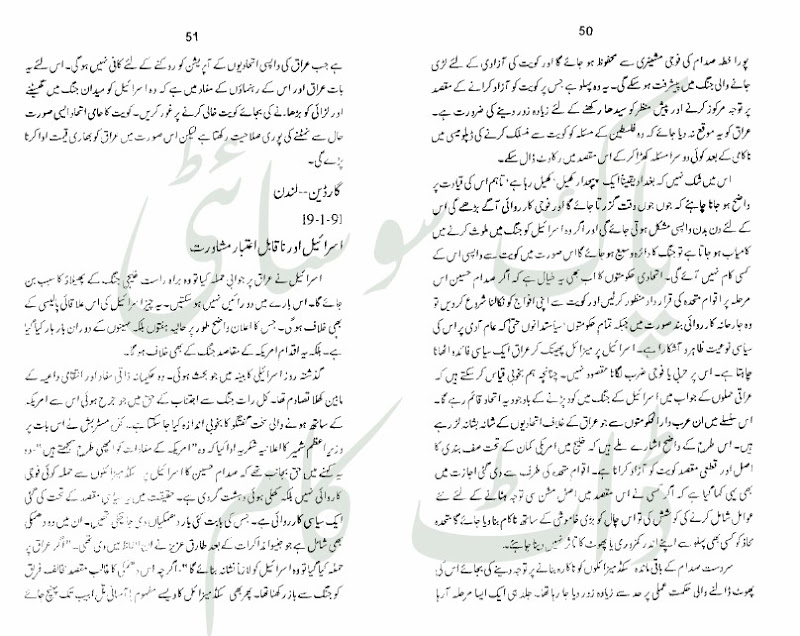 50
پورا خطہ صدام کی فوجی مشینری سے محفوظ ہو جائے گا اور کویت کی آزادی کے لئے لڑی
جانے والی جنگ میں پیشرفت ہو سکے گی۔ یہ وہ پہلو ہے جس پر کویت کو آزاد کرانے کے مقصد
پر توجہ مرکوز کرنے اور پیش منظر کو سیدھا رکھنے کے لئے زیادہ زور دینے کی ضرورت ہے۔
عراق کو یہ موقع نہ دیا جائے کہ وہ فلسطین کے مسئلہ کو کویت سے منسلک کرنے کی ڈپلومیسی میں
ناکامی کے بعد کوئی دوسرا مسئلہ کھڑا کر کے اس مقصد میں رکاوٹ ڈال سکے۔
اس میں شک نہیں کہ بغداد یقیناً ایک "پیچدار کھیل" کھیل رہا ہے تاہم اس کی قیادت پر
واضح ہو جانا چاہئے کہ جوں جوں وقت گزرتا جائے گا اور فوجی کارروائی آگے بڑھے گی اس
کے لئے دن بدن واپسی مشکل ہوتی جائے گی اور اگر وہ اسرائیل کو جنگ میں ملوث کرنے میں
کامیاب ہو جاتا ہے تو جنگ کا دائرہ وسیع ہو جائے گا اس صورت میں کویت سے واپسی اس کے
کسی کام نہیں آئے گی۔ اتحادی حکومتوں کا اب بھی یہ خیال ہے کہ اگر صدام حسین اس
مرحلہ پر اقوام متحدہ کی قرارداد منظور کر لیں اور کویت سے اپنی افواج کو نکالنا شروع کر دیں تو
وہ جارحانہ کاروائی بند صورت میں جبکہ تمام حکومتوں سیاستدانوں حتیٰ کہ عام آدمی پر اس کی
سیاسی نوعیت ظاہر و آشکارا ہے۔ اسرائیل پر میزائل پھینک کر عراق ایک سیاسی فائدہ اٹھانا
چاہتا ہے۔ اس پر حربی یا فوجی ضرب لگانا مقصود نہیں۔ چنانچہ ہم بخوبی قیاس کر سکتے ہیں کہ
عراقی حملوں کے جواب میں اسرائیل کے جنگ میں کود پڑنے کے باوجود یہ اتحاد قائم رہے گا۔
اس سلسلے میں ان عرب دار الحکومتوں سے جو عراق کے خلاف اتحادیوں کے شانہ بشانہ لڑ رہے
ہیں۔ اس طرح کے واضح اشارے ملے ہیں کہ خلیج میں امریکی کمان کے تحت صف بندی کا
اصل اور قطعی مقصد کویت کو آزاد کرانا ہے۔ اقوام متحدہ کی طرف سے دی گئی اجازت میں
بھی یہی کہا گیا ہے کہ اگر کسی نے اس مقصد میں اصل مشن سی توجہ ہٹانے کے لئے نئے
عوامل شامل کرنے کی کوشش کی تو اس چال کو بڑی خاموشی کے ساتھ ناکام بنا دیا جائے گا متحدہ
محاذ کو کسی بھی پہلو سے اپنے اندر کمزوری یا پھوٹ کا تاثر نہیں دینا چاہئے۔
سر دست صدام کے باقی ماندہ سکڈ میزائلوں کو ناکارہ بنانے پر توجہ دینے کی بجائے اس کی
پھوٹ ڈالنے والی حکمت عملی پر حد سے زیادہ زور دیا جا رہا تھا۔ جلد ہی ایک ایسا مرحلہ آ رہا
51
ہے جب عراق کی واپسی اتحادیوں کے آپریشن کو روکنے کے لئے کافی نہیں ہو گی۔ اس لئے یہ
بات عراق اور اس کے رہنماؤں کے مفاد میں ہے کہ وہ اسرائیل کو میدان جنگ میں گھسیٹنے
اور لڑائی کو بڑھانے کی بجائے کویت خالی کرنے پر غور کریں۔ کویت کا حامی اتحاد ایسی صورت
حال سے نمٹنے کی پوری صلاحیت رکھتا ہے لیکن اس صورت میں عراق کو بھاری قیمت ادا کرنا
پڑے گی۔
گارڈین--لندن
19-1-91
اسرائیل اور ناقابل اعتبار مشاورت
اسرائیل نے عراق پر جوابی حملہ کیا تو وہ براہ راست خلیجی جنگ کے پھیلاؤ کا سبب بن
جائے گا۔ اس بارے میں دو رائیں نہیں ہو سکتیں۔ یہ چیز اسرائیل کی اس علاقائی پالیسی کے
بھی خلاف ہو گی۔ جس کا اعلان واضح طور پر حالیہ ہفتوں بلکہ مہینوں کے دوران بار بار کیا گیا
ہے۔ بلکہ یہ اقدام امریکہ کے مقاصد جنگ کے بھی خلاف ہو گا۔
گذشتہ روز اسرائیلی کابینہ میں جو بحث ہوئی۔ وہ حکیمانہ ذاتی مفاد اور انتقامی داعیہ کے
مابین کھلا تصادم تھا۔ کل رات جنگ سے اجتناب کے حق میں جو جرح ہوئی اس سے امریکہ
کے ساتھ ہونے والی سخت گفتگو کا بخوبی اندازہ کیا جا سکتا ہے۔ مسٹر بش نے اس بات پر
وزیر اعظم شمیر کا اعلانیہ شکریہ ادا کیا کہ وہ "امریکہ کے مفادات کو اچھی طرح سمجھتے ہیں"۔ وہ
یہ کہنے میں حق بجانب تھے کہ صدام حسین کا اسرائیل پر سکڈ میزائلوں سے حملہ کوئی فوجی
کارروائی نہیں بلکہ کھلی ہوئی دہشت گردی ہے۔ حقیقت میں یہ سیاسی مقصد کے تحت کی گئی
ایک سیاسی کارروائی ہے۔ جس کی بابت کئی بار دھمکیاں دی جا چکی تھیں۔ ان میں وہ دھمکی
بھی شامل ہے جو جنیوا مذاکرات کے بعد طارق عزیز نے ان الفاظ میں دی تھی۔ "اگر عراق پر
حملہ کیا گیا تو وہ اسرائیل کو لازماً نشانہ بنائے گا"۔ اگرچہ اس دھمکی کا غالب مقصد مخالف فریق
کو جنگ سے باز رکھنا تھا۔ پھر بھی سکڈ میزائل کا ویسے مفہوم آسانی تل ابیب تک پہنچ جائے
پاک سوسائٹی
ڈاٹ کام